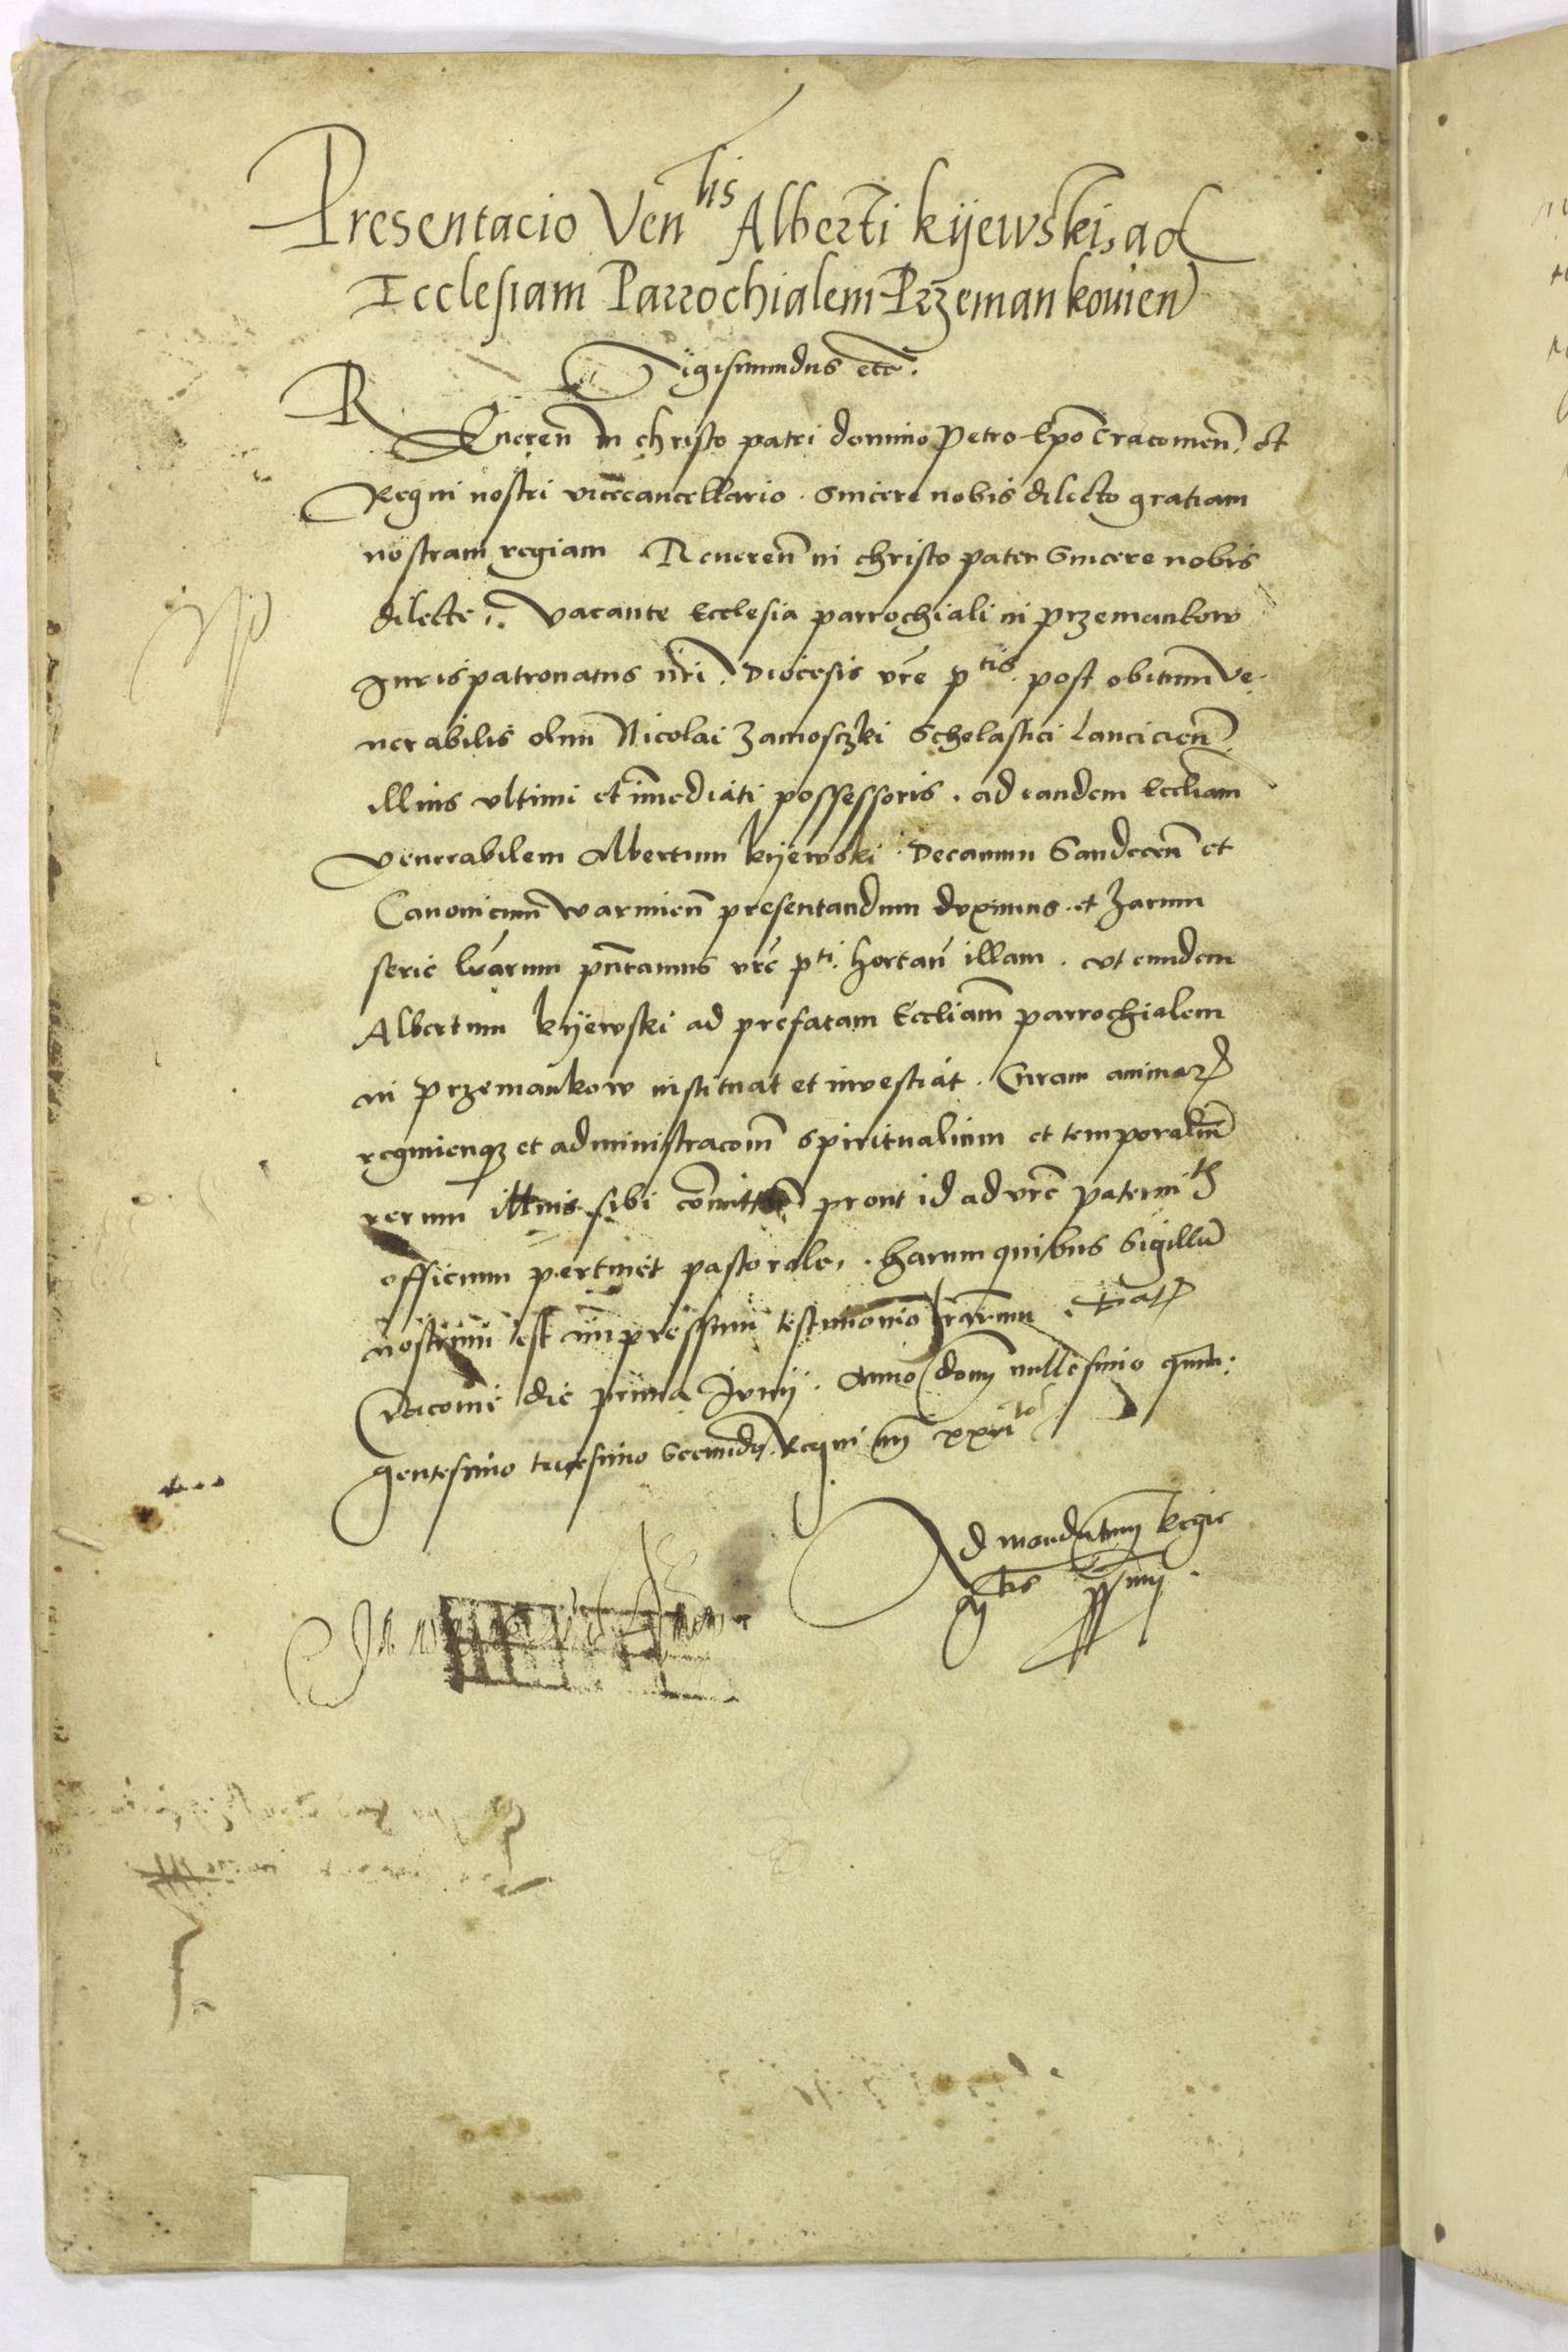 Presentacio Ven^lis Alberti kijewski, ad
Ecclesiam Parrochialem Przemankouien
Sigismundus etc.
REueren in christo patri domino Petro Epo Cracouien. et
Regni nostri vicecancellario. Sincere nobis dilecto gratiam
nostram regiam. Reueren in christo pater Sincere nobis
dilecte. Vacante Ecclesia parrochiali in przemankow
Jurispatronatus nri. Diocesis vre p^tis. post obitum ve-
nerabilis olim Nicolai Zamosczki Scholastici Lancicien.
illius vltimi et immediati possessoris. ad eandem Eccliam
Venerabilem Albertum kijewski Decanum Sandecen et
Canonicum warmien presentandum duximus. et harum
serie lrarum pntamus vre p^ti. hortan illam. vt eundem
Albertum kijewski ad prefatam Eccliam parrochialem
in Przemankow instituat et inuestiat. Curam animar
regimenq et administracom spiritualium et temporalium
rerum illius sibi committen prout id ad vre paternit^is
officium pertinet pastorale. harum quibus Sigillu
nostrum est impressum testimonio lrarum. Dat
Cracouie die prima Junij. Anno domj millesimo quin-
gentesimo tricesimo Secundo. Regni nri xxvi^to
Ad mandatum Regie
M^tis ppriu.